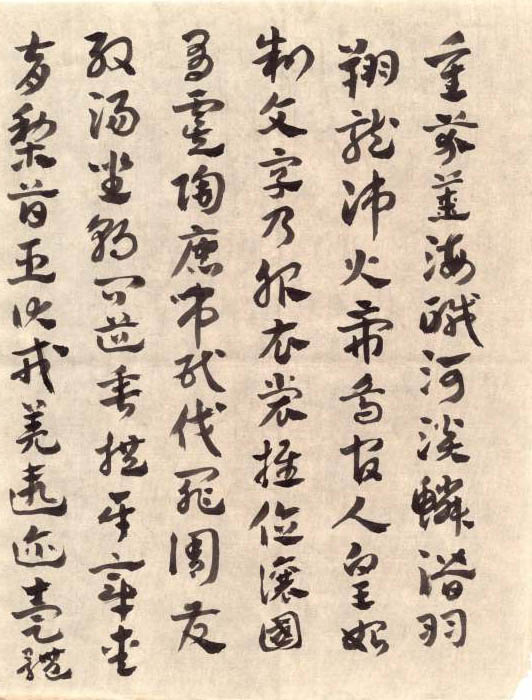 重芥薑海醎河淡鱗潛羽
翔龍師火帝鳥官人皇始
制文字乃服衣裳推位讓國
有虞陶唐弔民伐罪周發
殷湯坐朝問道垂拱平章愛
育黎首臣伏戎羌遐邇壹體